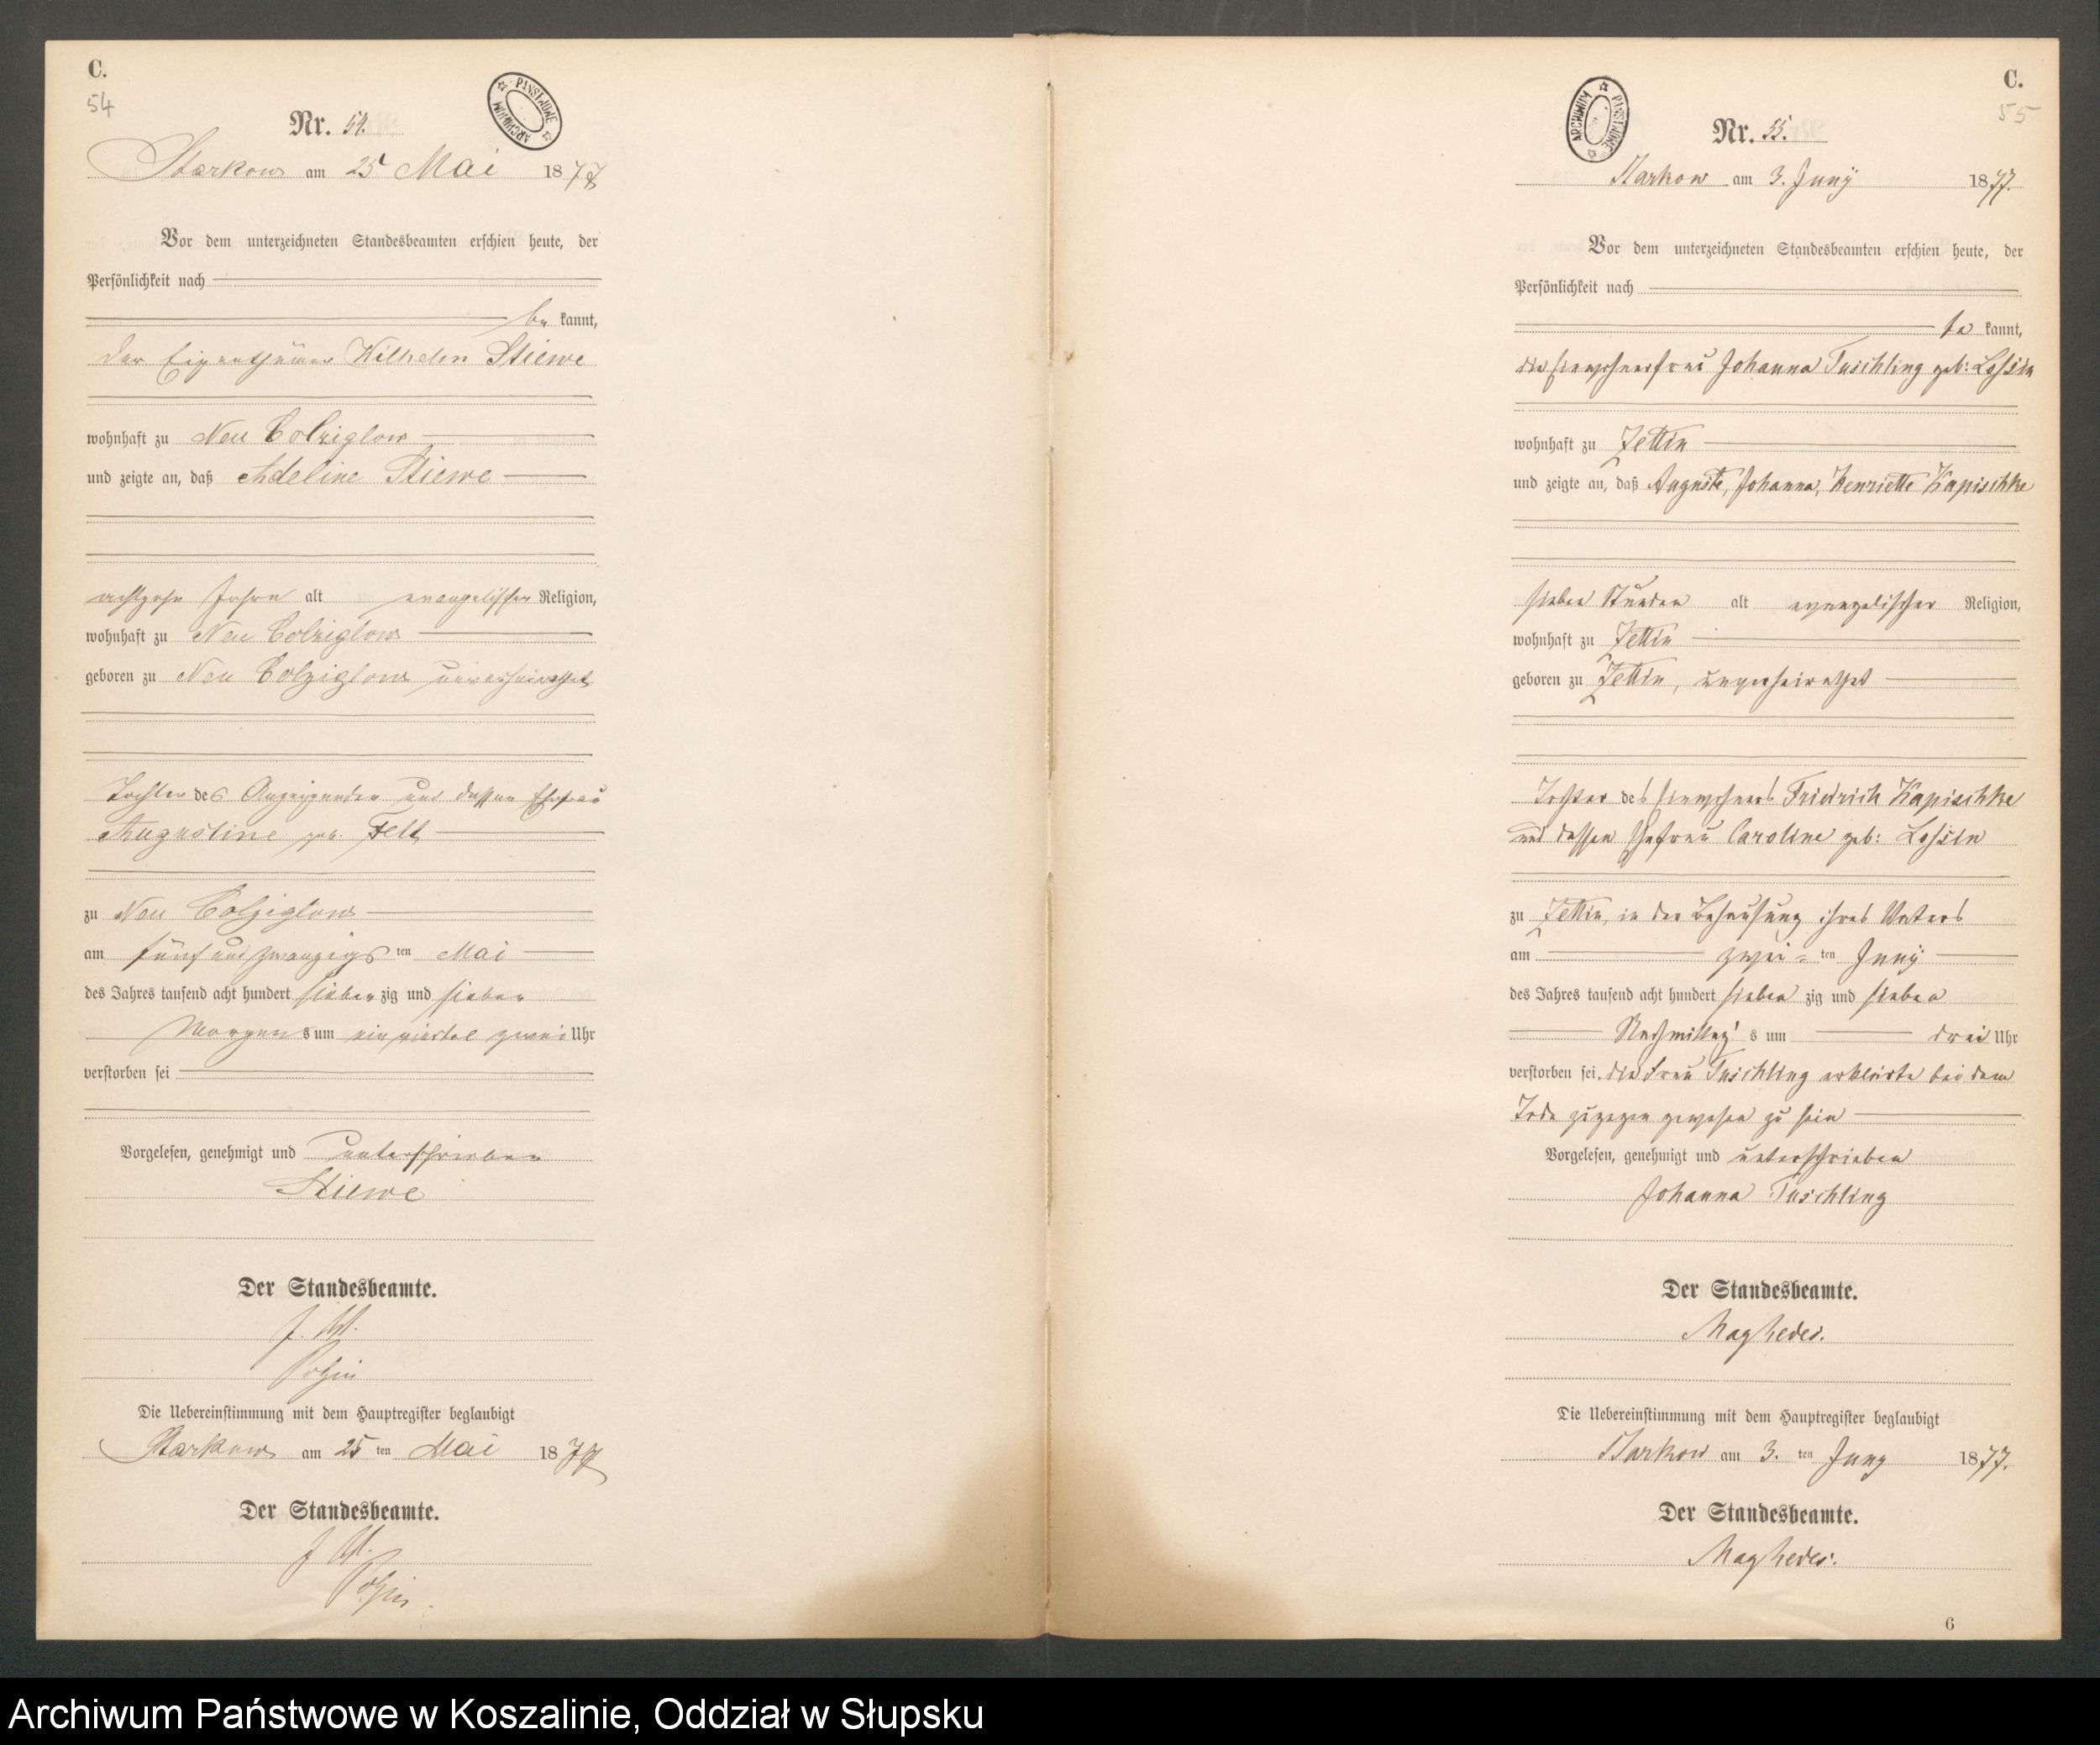 C.
54
Nr. 54.
Starkow am 25 Mai 1877
Vor dem unterzeichneten Standesbeamten erschien heute, der
Persönlichkeit nach
be kannt,
der Eigenthümer Wilhelm Stiewe
wohnhaft zu Neu Colziglow
und zeigte an, daß Adeline Stiewe
achtzehn Jahre alt evangelischer Religion,
wohnhaft zu Neu Colziglow
geboren zu Neu Colziglow unverheirathet
Tochter des Anzeigenden und dessen Ehefrau
Augustine geb. Felt
zu Neu Colziglow
am fünf und zwanzigs ten Mai
des Jahres tausend acht hundert sieben zig und sieben
Morgen s um ein viertel zwei Uhr
verstorben sei
Vorgelesen, genehmigt und unterschrieben
Stiewe
Der Standesbeamte.
Die Uebereinstimmung mit dem Hauptregister beglaubigt
Starkow am 25 ten Mai 1877
Der Standesbeamte.
ARCHIWUM PAŃSTWOWE
C.
55
Nr. 55.
Starkow am 3. Juny 1877.
Vor dem unterzeichneten Standesbeamten erschien heute, der
Persönlichkeit nach
be kannt,
die Einwohnerfrau Johanna Tuschling geb: Lossin
wohnhaft zu Zettin
und zeigte an, daß Auguste, Johanna, Henriette Kapischke
sieben Stunden alt evangelischer Religion,
wohnhaft zu Zettin
geboren zu Zettin, unverheirathet
Tochter des Einwohners Friedrich Kapischke
und dessen Ehefrau Caroline geb: Lossin
zu Zettin, in der Behausung ihres Vaters
am zwei- ten Juny
des Jahres tausend acht hundert sieben zig und sieben
Nachmittag' s um drei Uhr
verstorben sei. die Frau Tuschling erklärte bei dem
Tode zugegen gewesen zu sein
Vorgelesen, genehmigt und unterschrieben
Johanna Tuschling
Der Standesbeamte.
Die Uebereinstimmung mit dem Hauptregister beglaubigt
Starkow am 3. ten Juny 1877.
Der Standesbeamte.
6
ARCHIWUM PAŃSTWOWE
Archiwum Państwowe w Koszalinie, Oddział w Słupsku